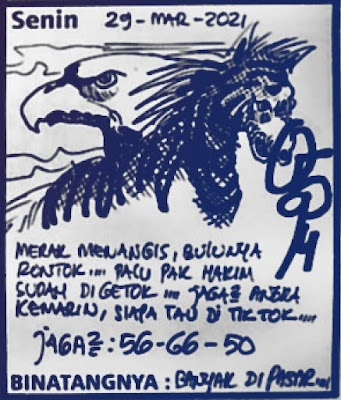 Senin 29-MAR-2021
MERAK MENANGIS, BULUNYA
RONTOK.... PALU PAK HAKIM
SUDAH DI GETOK.... JAGA2 ANGKA
KEMARIN, SIAPA TAU DI TIKTOK....
JAGA2 : 56-66-50
BINATANGNYA : BANYAK DI PASAR....